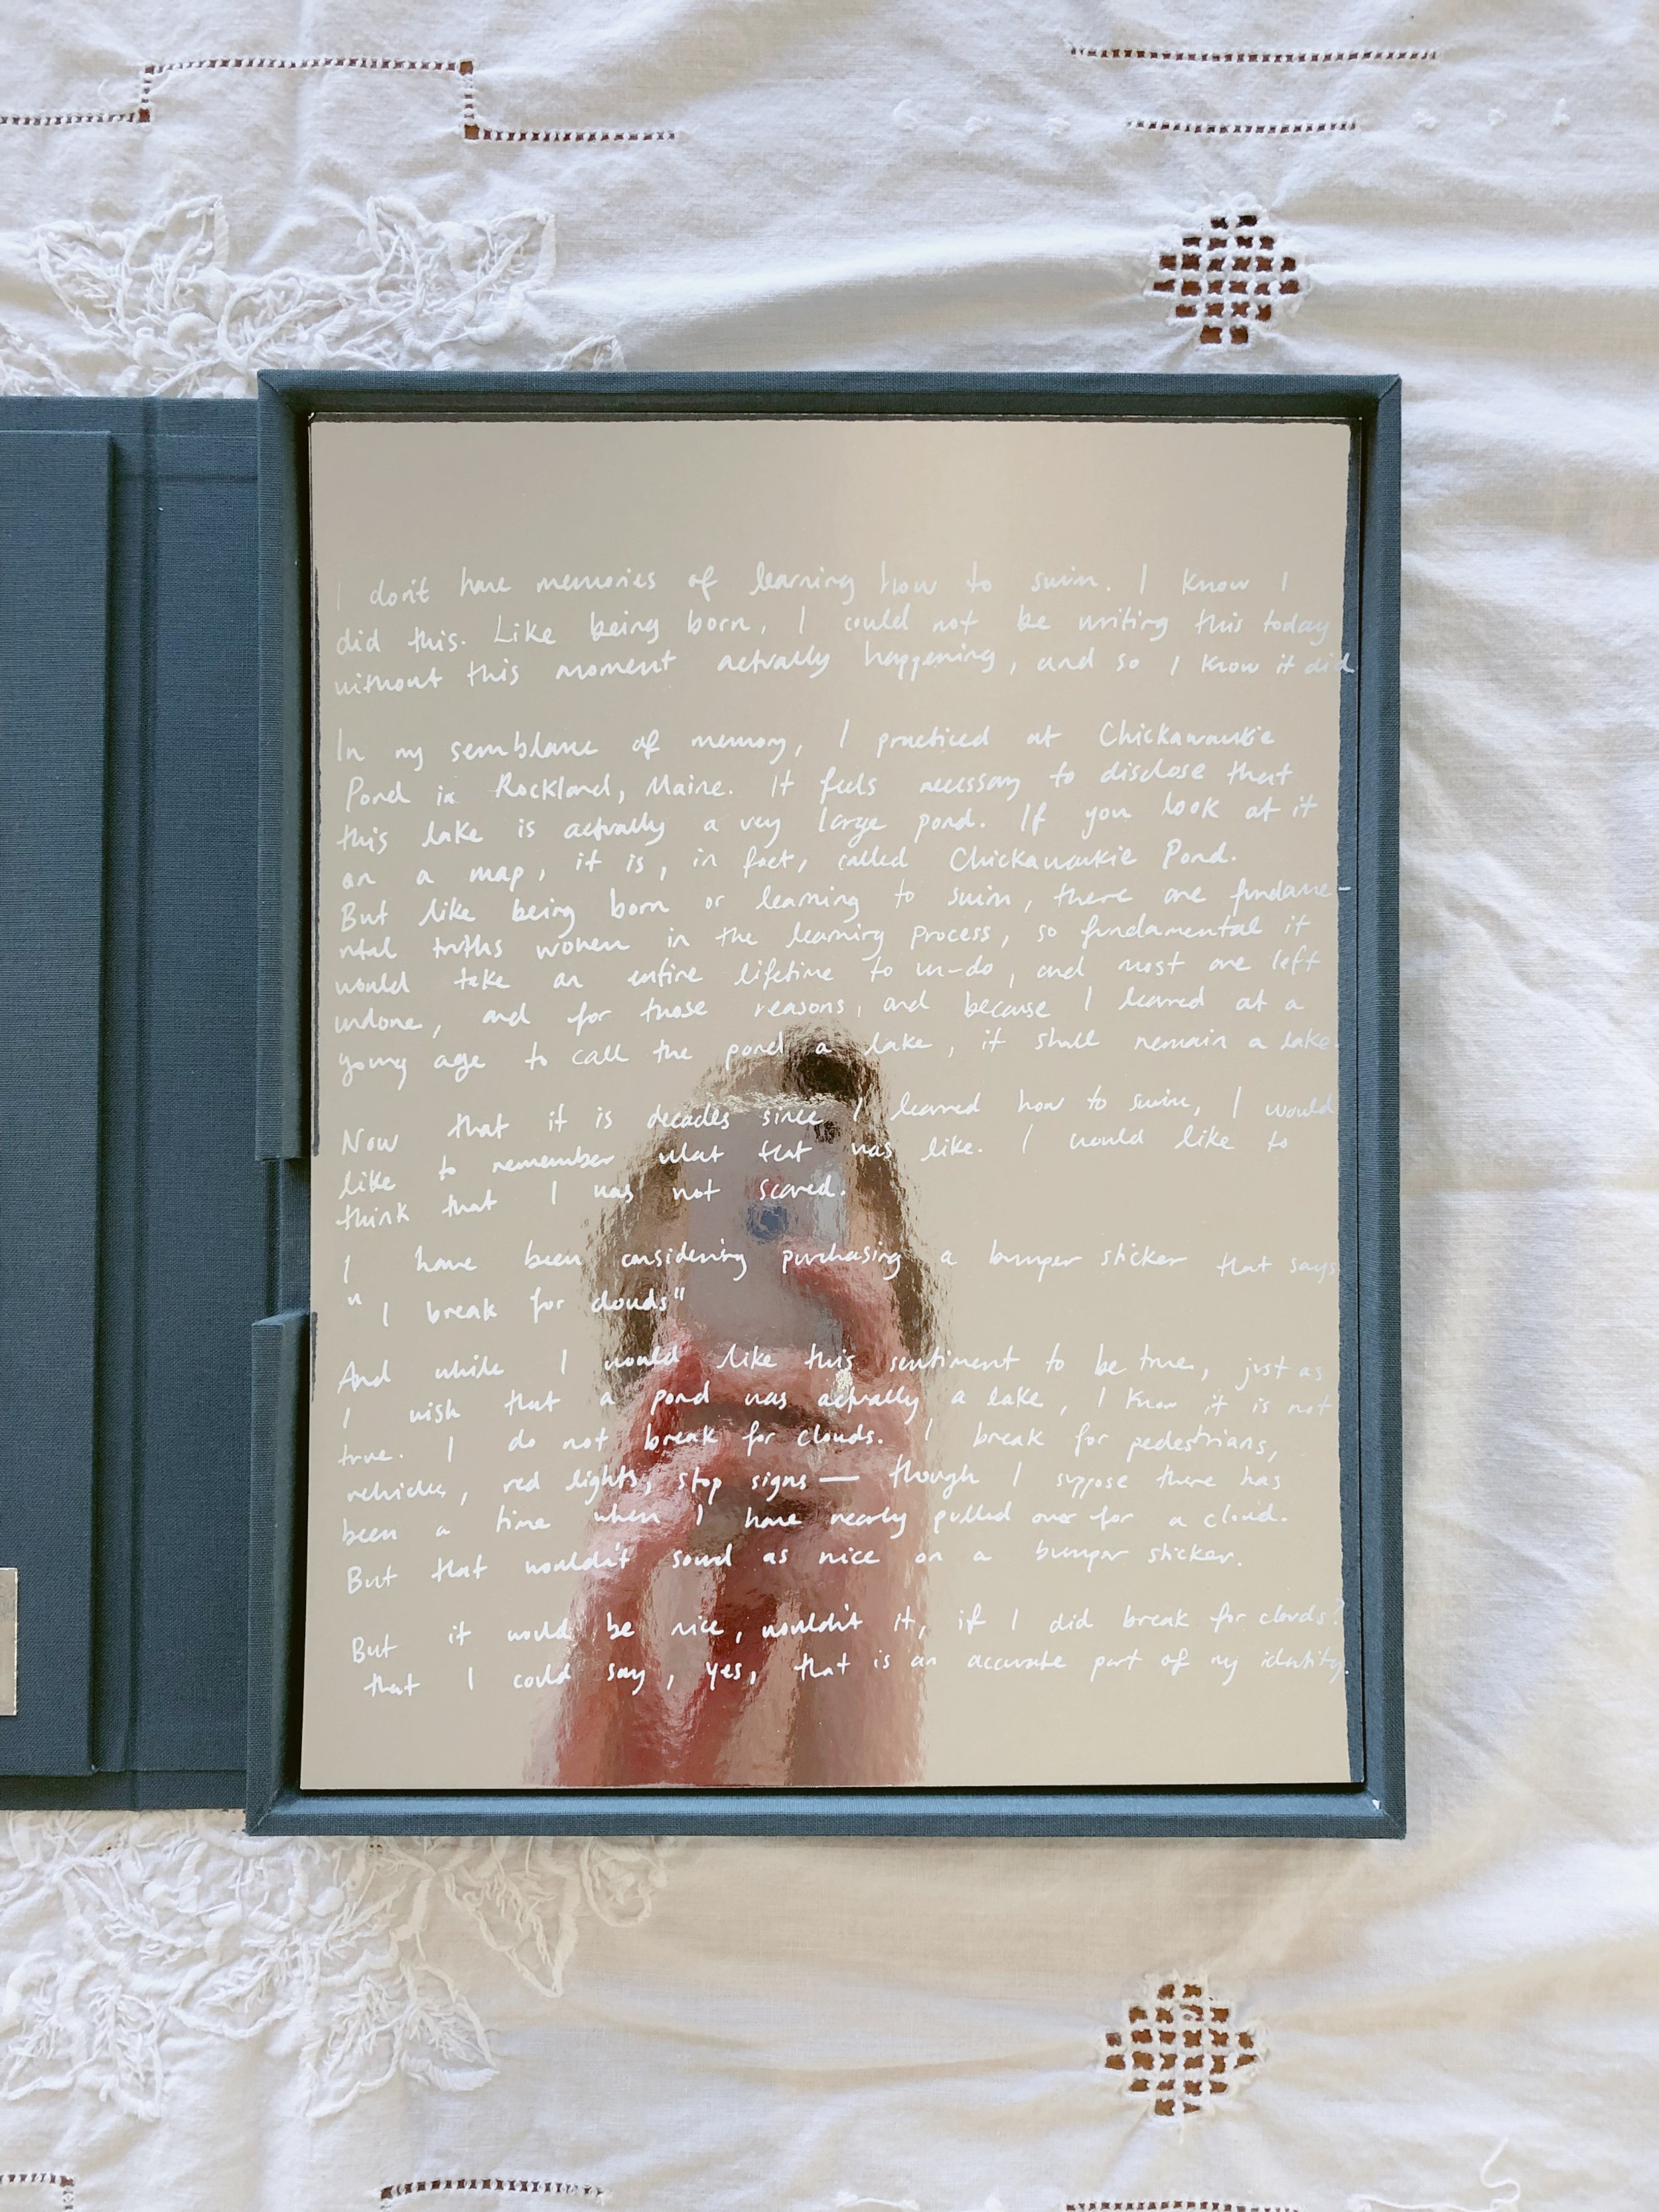 I don't have memories of learning how to swim. I know I
did this. Like being born, I could not be writing this today
without this moment actually happening, and so I know it did
In my semblance of memory, I practiced at Chickawaukie
Pond in Rockland, Maine. It feels necessary to disclose that
this lake is actually a very large pond. If you look at it
on a map, it is, in fact, called Chickawaukie Pond.
But like being born or learning to swim, there are fundame-
ntal truths woven in the learning process, so fundamental it
would take an entire lifetime to un-do, and most are left
undone, and for those reasons, and because I learned at a
young age to call the pond a lake, it shall remain a lake.
Now that it is decades since I learned how to swim, I would
like to remember what that was like. I would like to
think that I was not scared.
I have been considering purchasing a bumper sticker that says
"I break for clouds"
And while I would like this sentiment to be true, just as
I wish that a pond was actually a lake, I know it is not
true. I do not break for clouds. I break for pedestrians,
vehicles, red lights, stop signs — though I suppose there has
been a time when I have nearly pulled over for a cloud.
But that wouldn't sound as nice on a bumper sticker.
But it would be nice, wouldn't it, if I did break for clouds?
that I could say, yes, that is an accurate part of my identity.